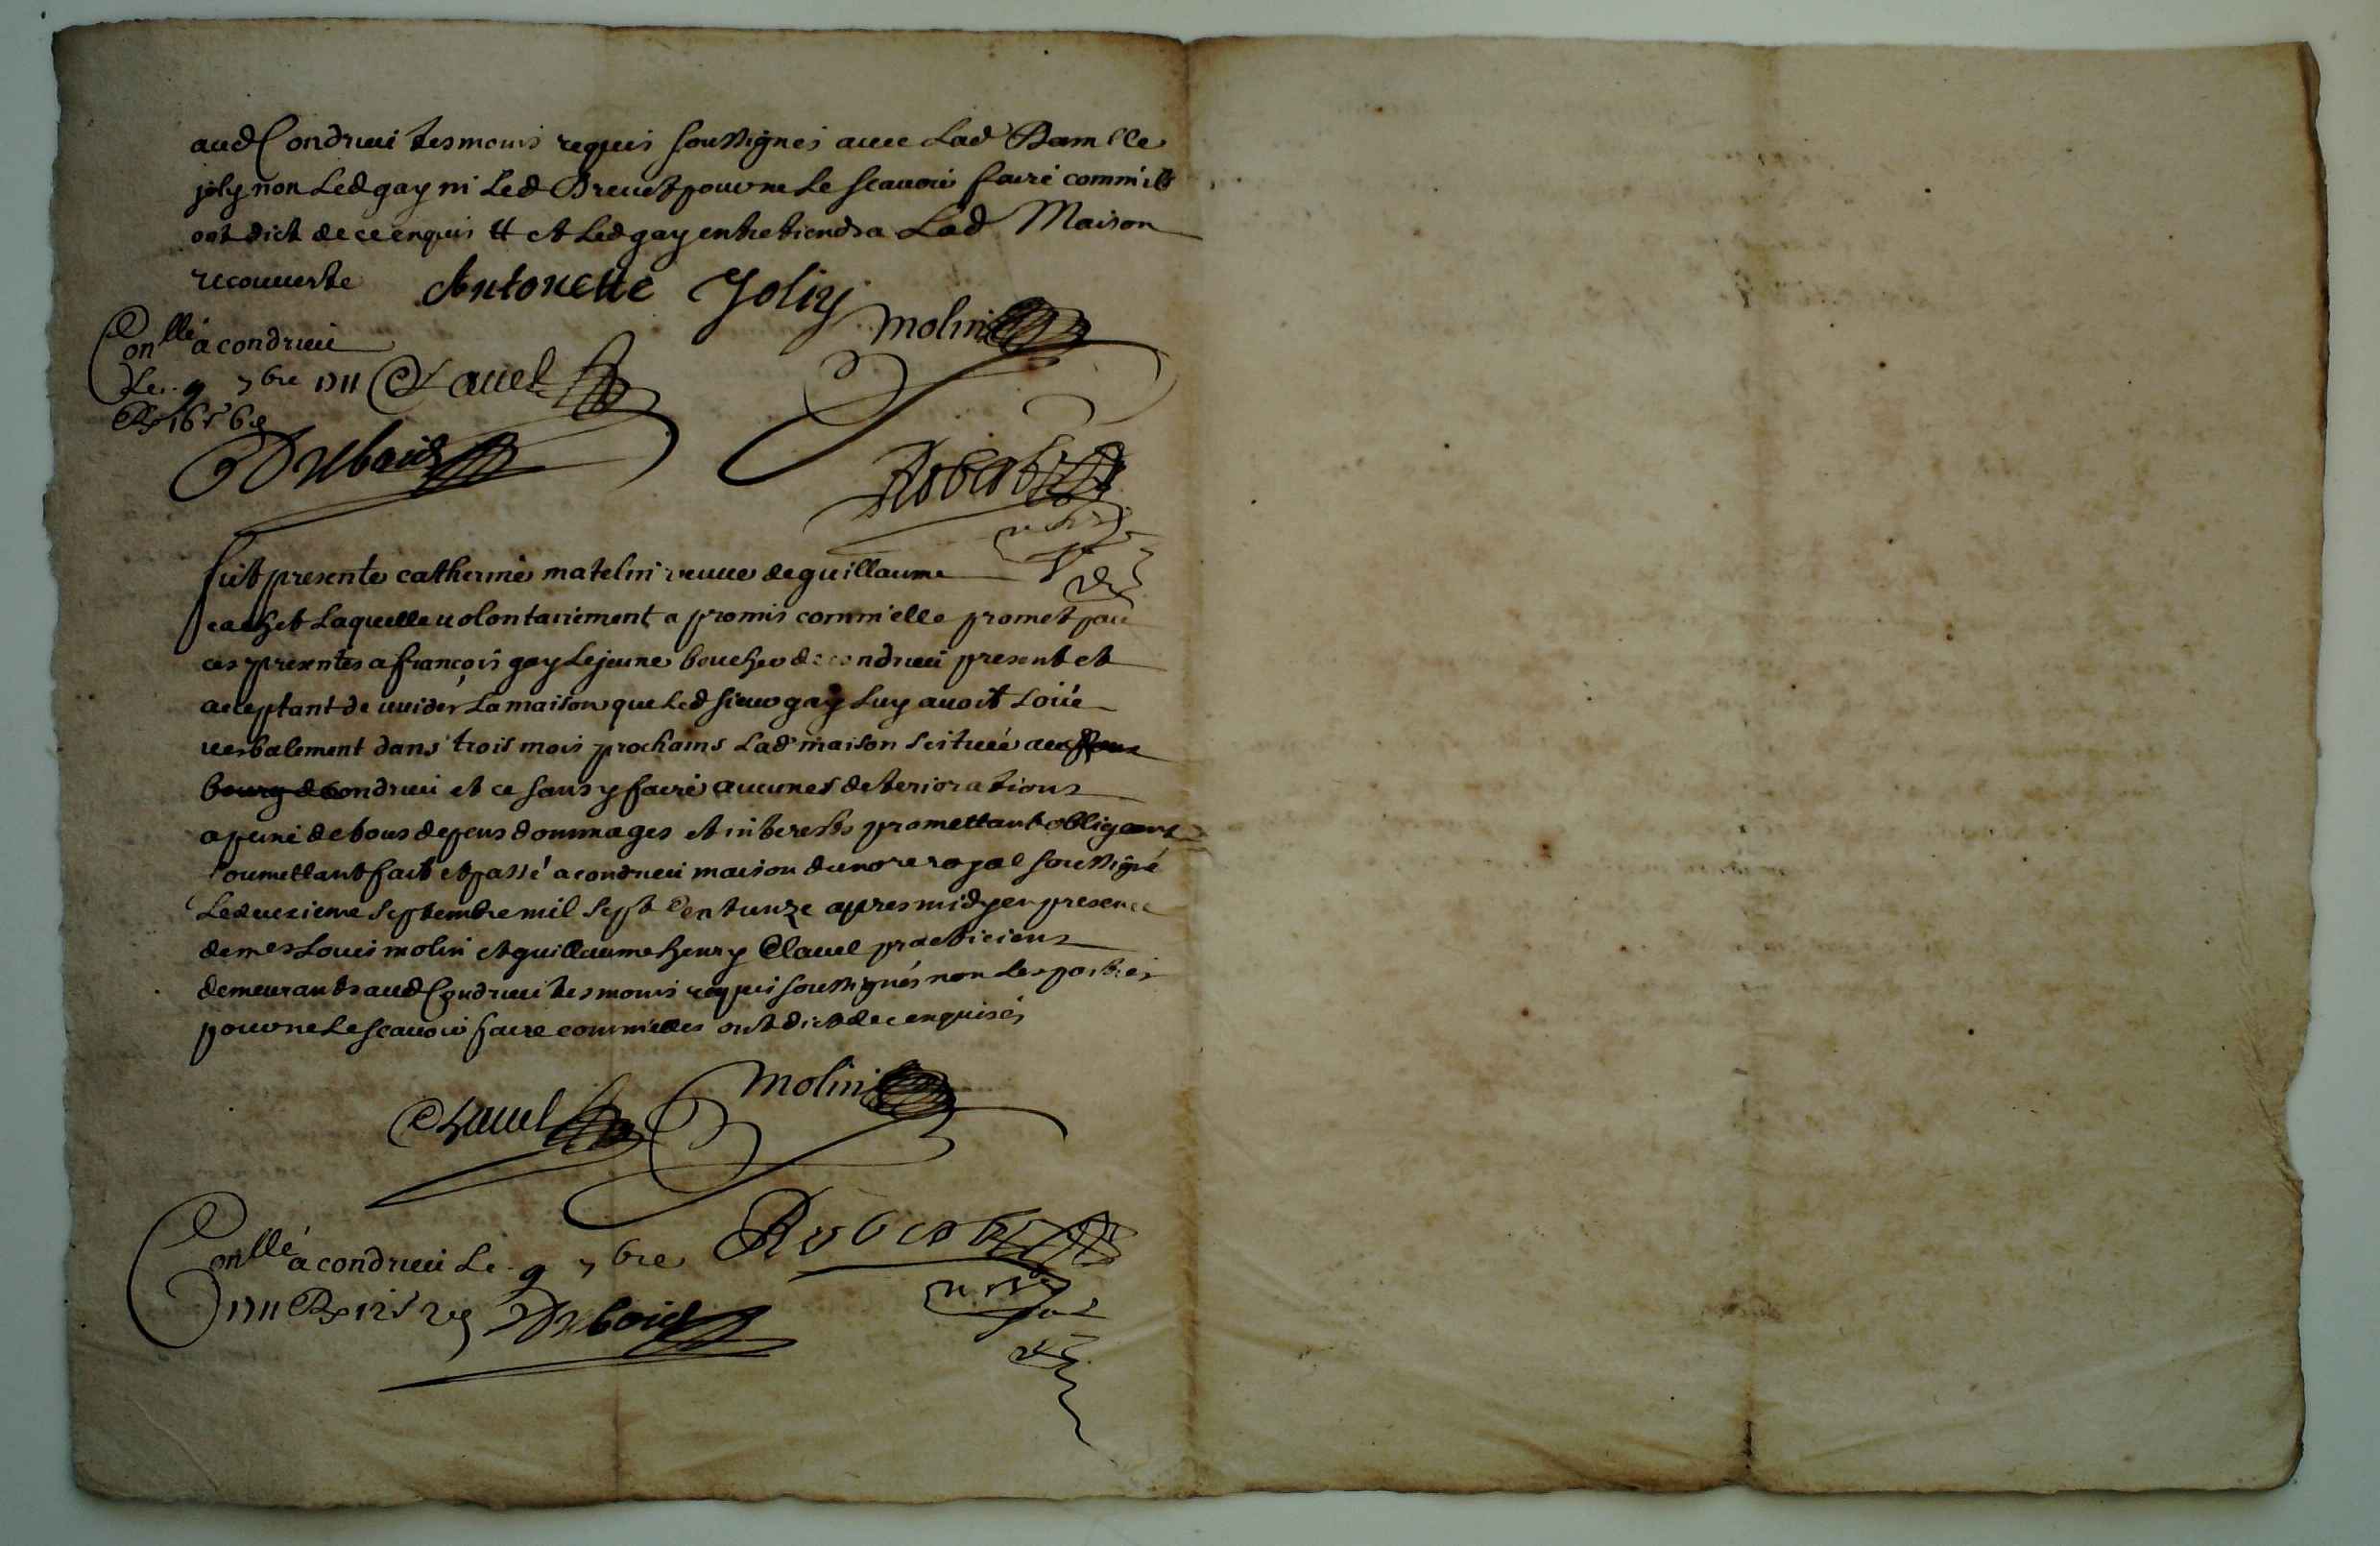 aud Condrieu tesmoins requis soussignes avec Lad Damlle
joly non Led gay ni Led Brevet pour ne le scavoir faire comm'ils
ont dict de ce enquis # et Led gay entretiendra Lad Maison
recouverte Antonette Joliy
Molin
Conllé a condrieu
Le 9 7bre 1711 Clavel
R 16s 6d
Dubois
Robert
no re
Fut presente catherine matelin veuve de guillaume
cachet Laquelle volontairement a promis comm'elle promet par
ces presentes a françois gay Le jeune boucher de condrieu present et
aceptant de vuider La maison que Led sieur gay Luy avoit Loüé
verbalement dans trois mois prochains Lad maison scituéé au faux
bourg de Condrieu et ce sans y faire aucunes deteriorations
a peine de tous depens dommages et interests promettant obligeant
soumettant fait et passé a condrieu maison du nore royal soussigné
Le deuxieme Septembre mil Sept Cent unze apres midy en presence
de mes Louis molin et guillaume henry Clavel practiciens
demeurants aud Condrieu tesmoins requis soussignés non Les parties
pour ne Le scavoir faire comm'elles ont dict de ce enquises
Molin
Clavel
Conllé a condrieu Le 9 7bre Robert
1711 R 12s 2d Dubois
no re